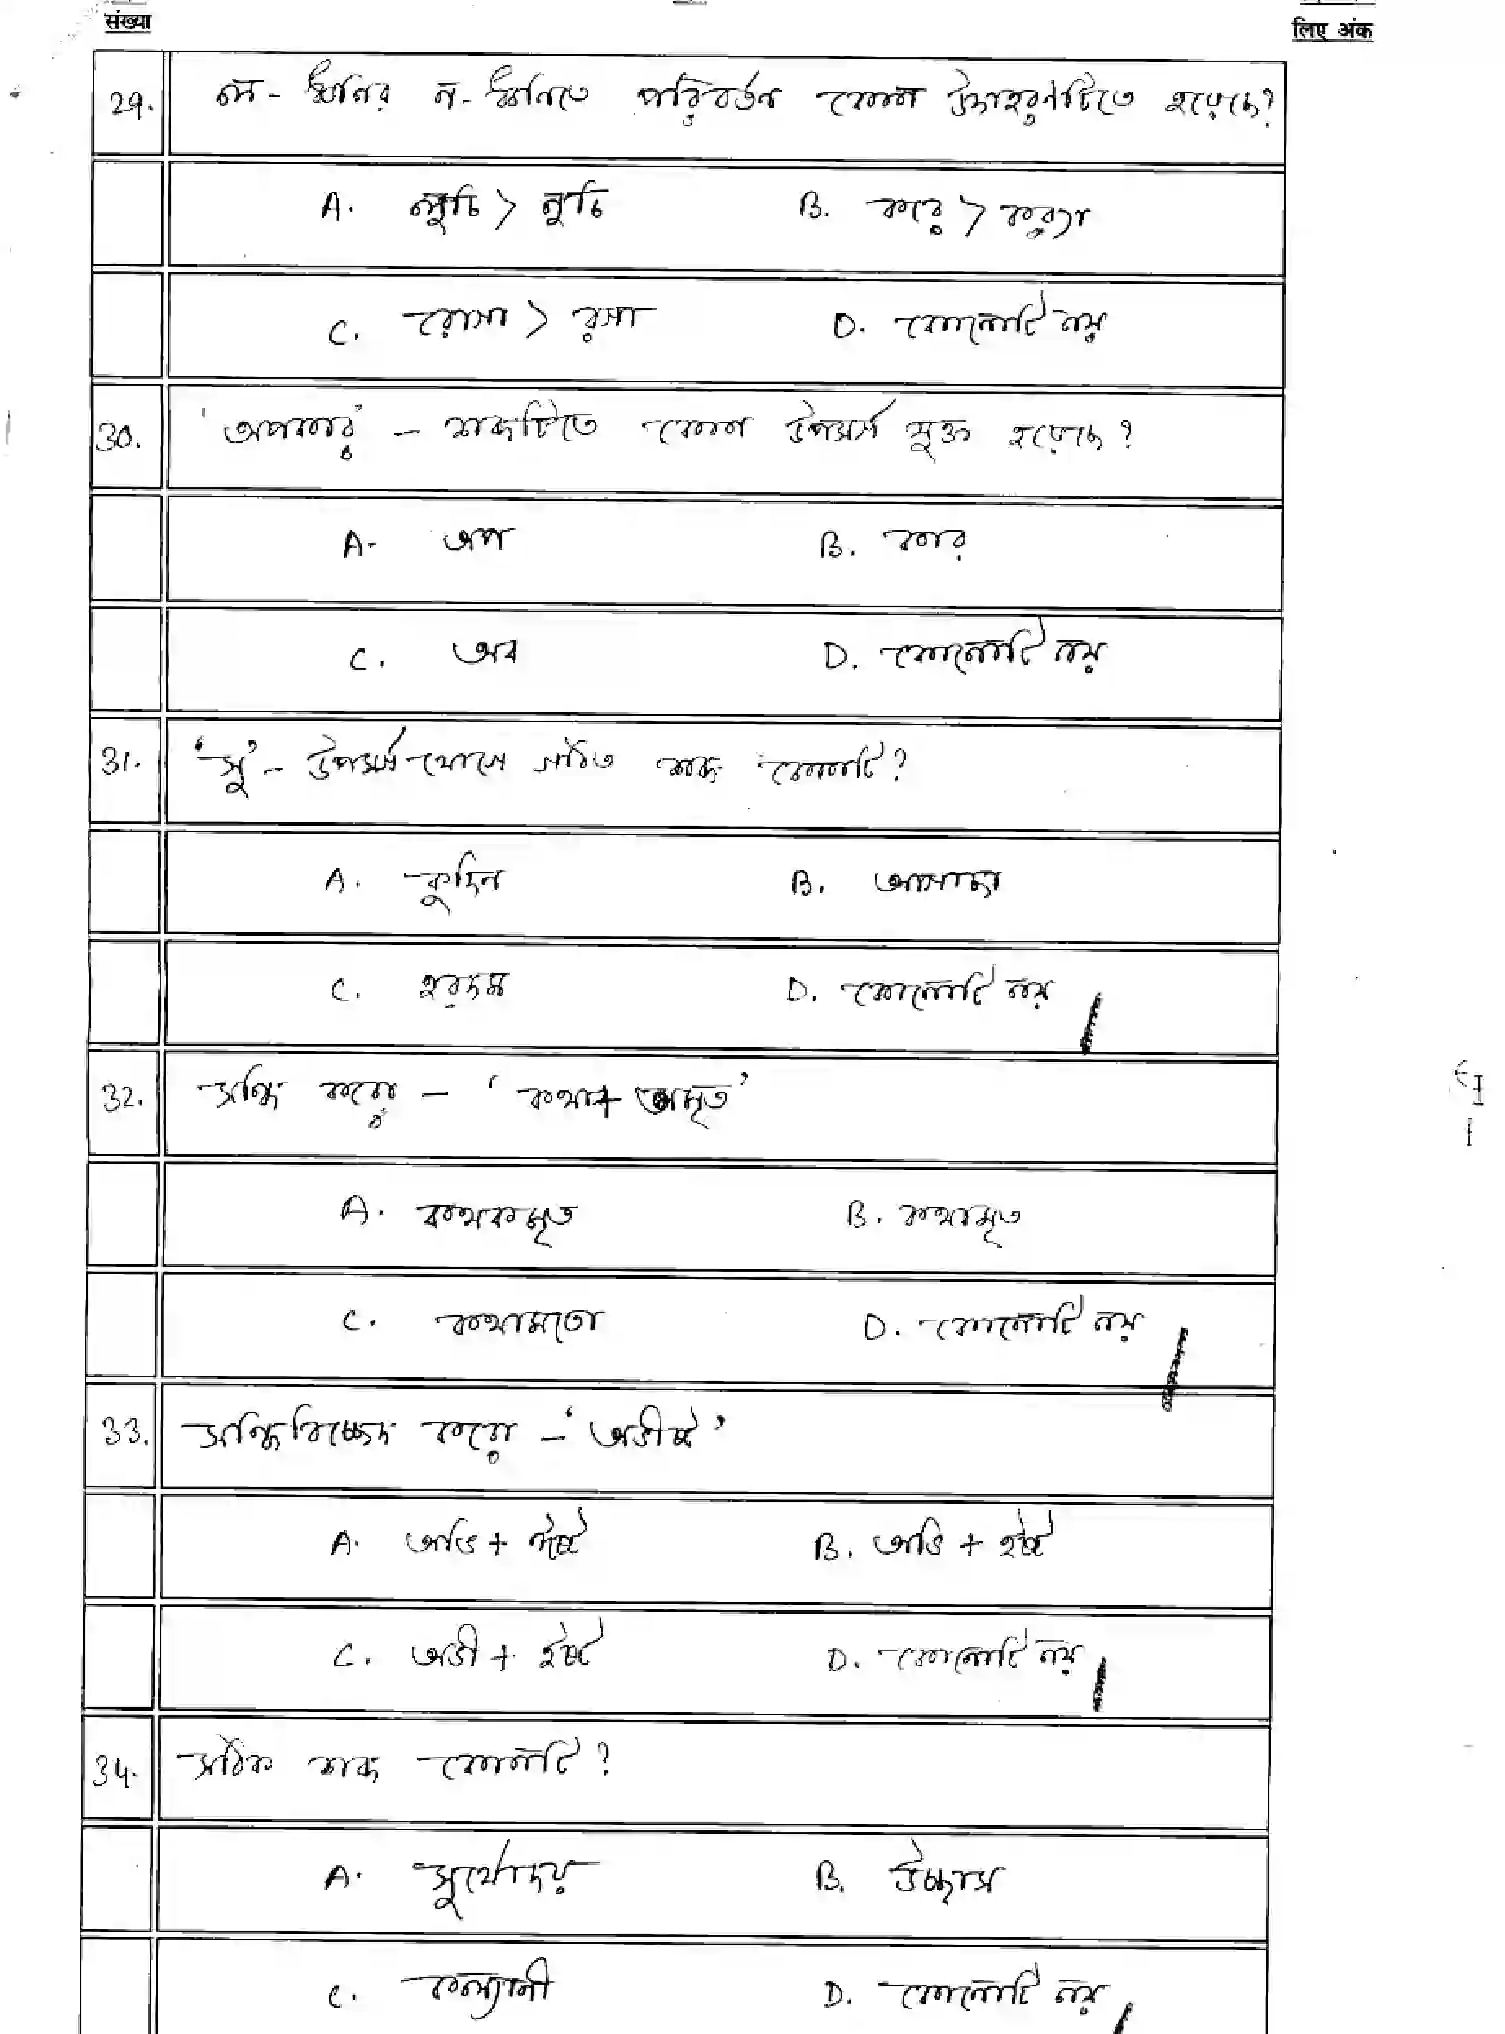 संख्या
लिए अंक
29. ল - ধ্বনির ন - ধ্বনিতে পরিবর্তন কোন উদাহরণটিতে হয়েছে?
A. লুচি > নুচি B. করে > কর‍্যা
C. রোসা > রসা D. কোনোটি নয়
30. 'অপকার' – শব্দটিতে কোন উপসর্গ যুক্ত হয়েছে?
A. অপ B. কার
C. অব D. কোনোটি নয়
31. 'সু' - উপসর্গ-যোগে গঠিত শব্দ কোনটি?
A. কুদিন B. আগাছা
C. হরদম D. কোনোটি নয়
32. সন্ধি করো – 'কথা + অমৃত'
A. কথকামৃত B. কথামৃত
C. কথামতো D. কোনোটি নয়
33. সন্ধিবিচ্ছেদ করো – 'অভীষ্ট'
A. অভি + ঈষ্ট B. অভি + ইষ্ট
C. অভী + ইষ্ট D. কোনোটি নয়
34. সঠিক শব্দ কোনটি?
A. সূর্যোদয় B. উচ্ছাস
C. কল্যানী D. কোনোটি নয়